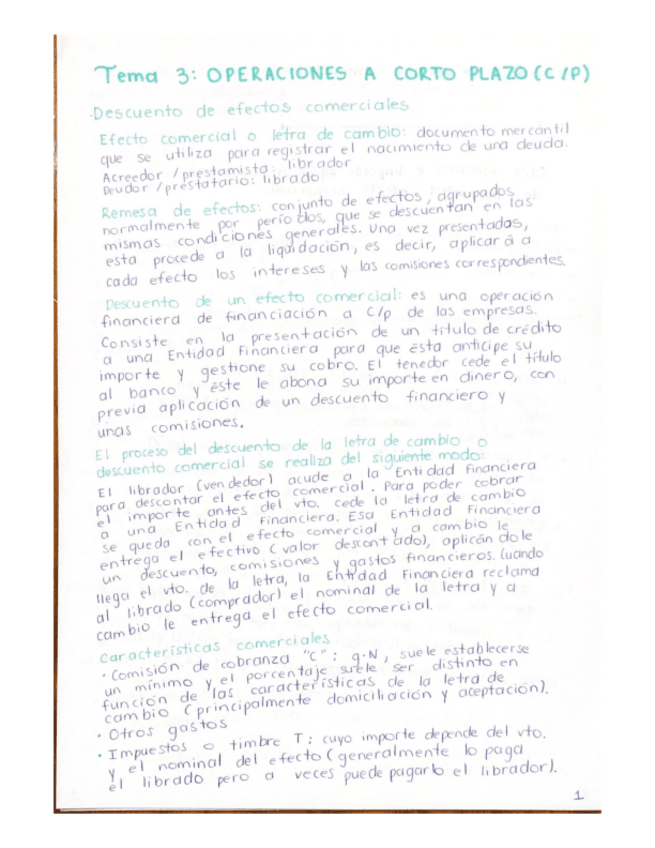 Tema 3: OPERACIONES A CORTO PLAZO (C/P)
Descuento de efectos comerciales
Efecto comercial o letra de cambio: documento mercantil
que se utiliza para registrar el nacimiento de una deuda.
Acreedor / prestamista: librador
Deudor / prestatario: librado
Remesa de efectos: conjunto de efectos, agrupados
normalmente por periodos, que se descuentan en las
mismas condiciones generales. Una vez presentadas,
esta procede a la liquidación, es decir, aplicará a
cada efecto los intereses y las comisiones correspondientes.
Descuento de un efecto comercial: es una operación
financiera de financiación a C/p de las empresas.
Consiste en la presentación de un título de crédito
a una Entidad Financiera para que ésta anticipe su
importe y gestione su cobro. El tenedor cede el título
al banco y éste le abona su importe en dinero, con
previa aplicación de un descuento financiero y
unas comisiones.
El proceso del descuento de la letra de cambio o
descuento comercial se realiza del siguiente modo:
El librador (vendedor) acude a la Entidad Financiera
para descontar el efecto comercial. Para poder cobrar
el importe antes del vto. cede la letra de cambio
a una Entidad Financiera. Esa Entidad Financiera
se queda con el efecto comercial y a cambio le
entrega el efectivo (valor descontado), aplicándole
un descuento, comisiones y gastos financieros. Cuando
llega el vto. de la letra, la Entidad Financiera reclama
al librado (comprador) el nominal de la letra y a
cambio le entrega el efecto comercial.
Características comerciales
• Comisión de cobranza "C": g·N, suele establecerse
un mínimo y el porcentaje suele ser distinto en
función de las características de la letra de
cambio (principalmente domiciliación y aceptación).
• Otros gastos
• Impuestos o timbre T: cuyo importe depende del vto.
y el nominal del efecto (generalmente lo paga
el librado pero a veces puede pagarlo el librador).
1